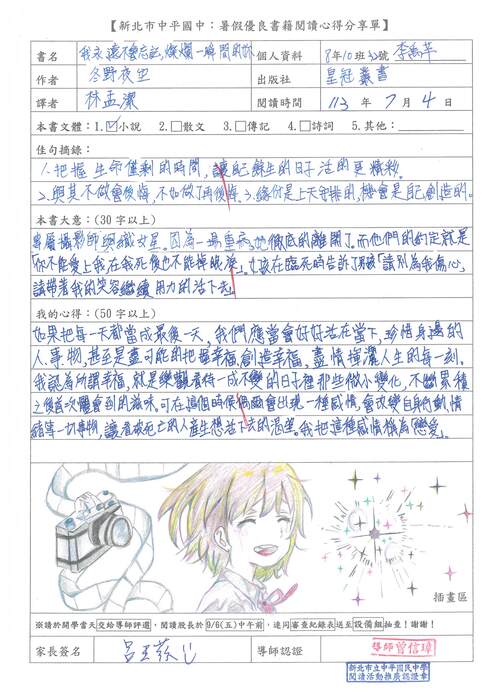 【新北市中平國中：暑假優良書籍閱讀心得分享單】
書名 我永遠不會忘記,燦爛一瞬間的妳 個人資料 8年10班30號 李禹芊
作者 冬野夜空 出版社 皇冠叢書
譯者 林孟潔 閱讀時間 113 年 7 月 4 日
本書文體：1.☑小說 2.□散文 3.□傳記 4.□詩詞 5.其他：
佳句摘錄：
1.把握生命僅剩的時間,讓自己餘生的日子活的更精彩。
2.與其不做會後悔,不如做了再後悔。3.緣份是上天安排的,機會是自己創造的。
本書大意：(30 字以上)
專屬攝影師與織女星。因為一場重病,她徹底的離開了而他們的約定就是
「你不能愛上我,在我死後也不能掉眼淚」。女孩在臨死時告訴了男孩「請別為我傷心,
請帶著我的笑容繼續用力的活下去」
我的心得：(50 字以上)
如果把每一天都當成最後一天,我們應當會好好活在當下,珍惜身邊的
人事物,甚至是盡可能的把握幸福,創造幸福,盡情揮灑人生的每一刻。
我認為所謂幸福,就是樂觀看待一成不變的日子裡那些微小變化,不斷累積
之後首次體會到的滋味,可在這個時候偶爾會出現一種感情,會改變自身的動情
緒等一切事物,讓看破死亡的人產生想活下去的渴望。我把這種感情稱為「戀愛」。
插畫區
※請於開學當天交給導師評選，閱讀股長於 9/6(五)中午前，連同審查紀錄表送至設備組抽查！謝謝！
家長簽名 導師認證 導師曾信璋
新北市立中平國民中學
閱讀活動推廣認證章